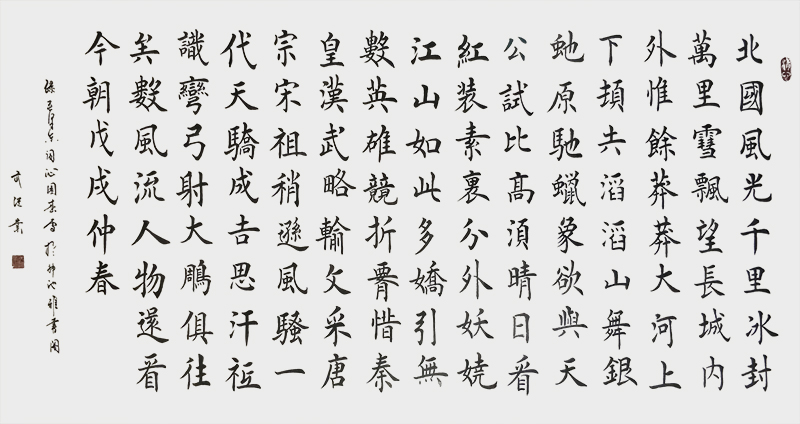 北國風光千里冰封
萬里雪飄望長城内
外惟餘莽莽大河上
下頓失滔滔山舞銀
虵原馳蠟象欲與天
公試比高須晴日看
紅装素裹分外妖娆
江山如此多嬌引無
數英雄競折腰惜秦
皇漢武略輸文采唐
宗宋祖稍遜風騷一
代天驕成吉思汗祗
識彎弓射大鵰俱往
矣數風流人物還看
今朝戊戌仲春
錄毛泽东词沁园春雪於雅書閣